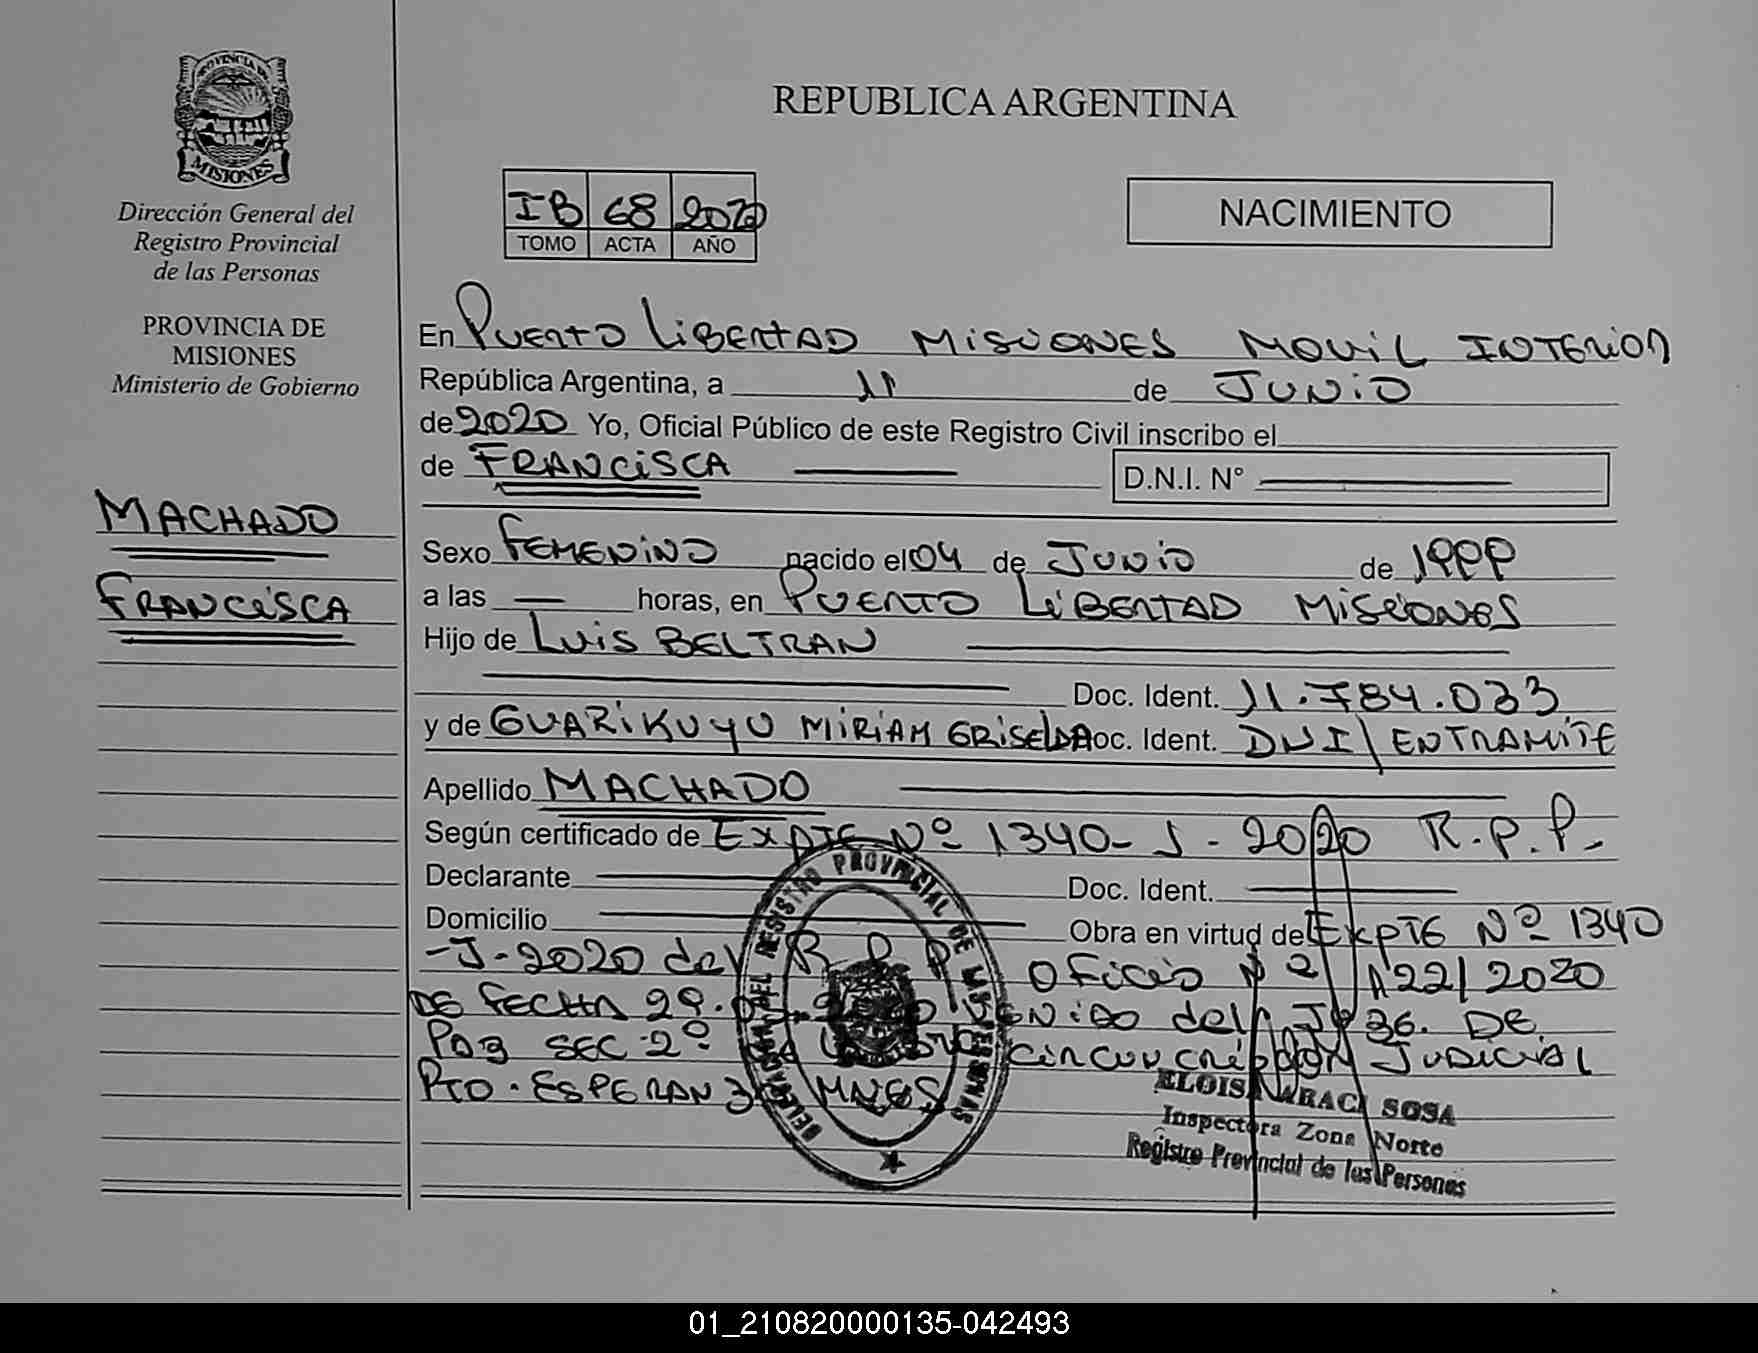 PROVINCIA DE
MISIONES
Dirección General del
Registro Provincial
de las Personas
PROVINCIA DE
MISIONES
Ministerio de Gobierno
MACHADO
FRANCISCA
REPUBLICA ARGENTINA
IB 68 2020
TOMO ACTA AÑO
NACIMIENTO
En PUERTO LIBERTAD MISIONES MOVIL INTERIOR
República Argentina, a 11 de JUNIO
de 2020 Yo, Oficial Público de este Registro Civil inscribo el
de FRANCISCA D.N.I. N°
Sexo FEMENINO nacido el 04 de JUNIO de 1999
a las — horas, en PUERTO LIBERTAD MISIONES
Hijo de LUIS BELTRAN
Doc. Ident. 11.784.033
y de GUARIKUYU MIRIAM GRISELDA Doc. Ident. DNI/ EN TRAMITE
Apellido MACHADO
Según certificado de EXPTE Nº 1340-J-2020 R.P.P.-
Declarante Doc. Ident.
Domicilio Obra en virtud de EXPTE Nº 1340
-J-2020 del R P P OFICIO Nº 1122/2020
DE FECHA 29. del JU36. DE
PAZ SEC 2º CIRCUNCRIPCION JUDICIAL
PTO. ESPERANZA MNES
DELEGACION DEL REGISTRO PROVINCIAL DE LAS PERSONAS
ELOISA ARACI SOSA
Inspectora Zona Norte
Registro Provincial de las Personas
01_210820000135-042493